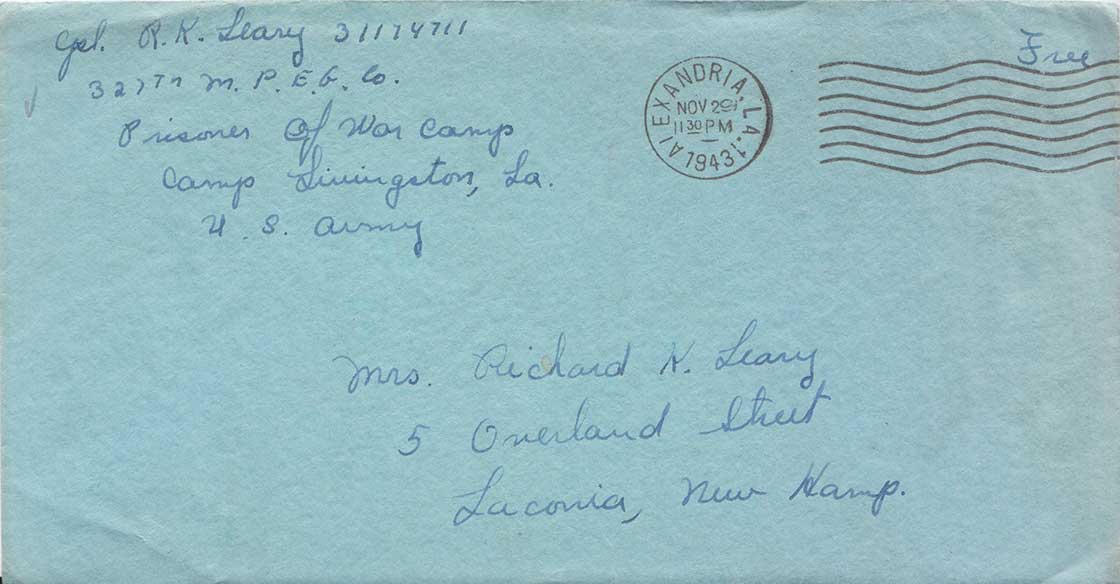 Cpl. R. K. Leary 31174711
327th M. P. E. G. Co.
Prisoner Of War Camp
Camp Livingston, La.
U. S. Army
ALEXANDRIA, LA.
NOV 29
11 30 PM
1943
Free
Mrs. Richard K. Leary
5 Overland Street
Laconia, New Hamp.